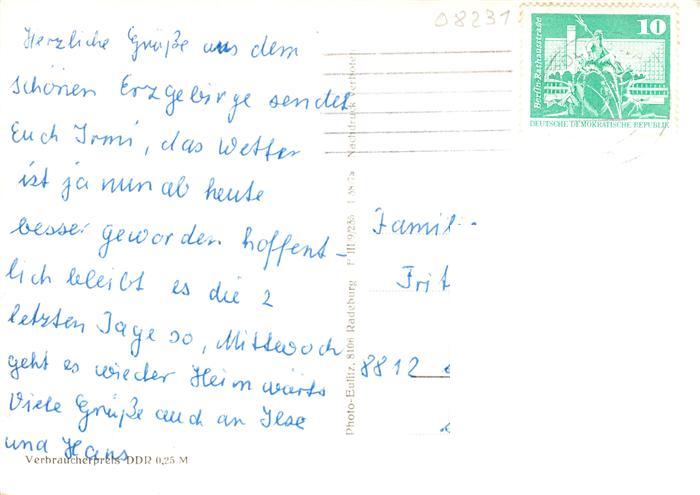 Herzliche Grüße aus dem
schönen Erzgebirge sendet
Euch Irmi, das Wetter
ist ja nun ab heute
besser geworden hoffent-
lich bleibt es die 2
letzten Tage so, Mittwoch
geht es wieder Heimwärts
Viele Grüße auch an Ilse
und Hans
Verbraucherpreis DDR 0,25 M
Photo-Eulitz, 8106 Radeburg
Nachdruck verboten
08231
10
Berlin-Rathausstraße
DEUTSCHE DEMOKRATISCHE REPUBLIK
Famil
Frit
8812